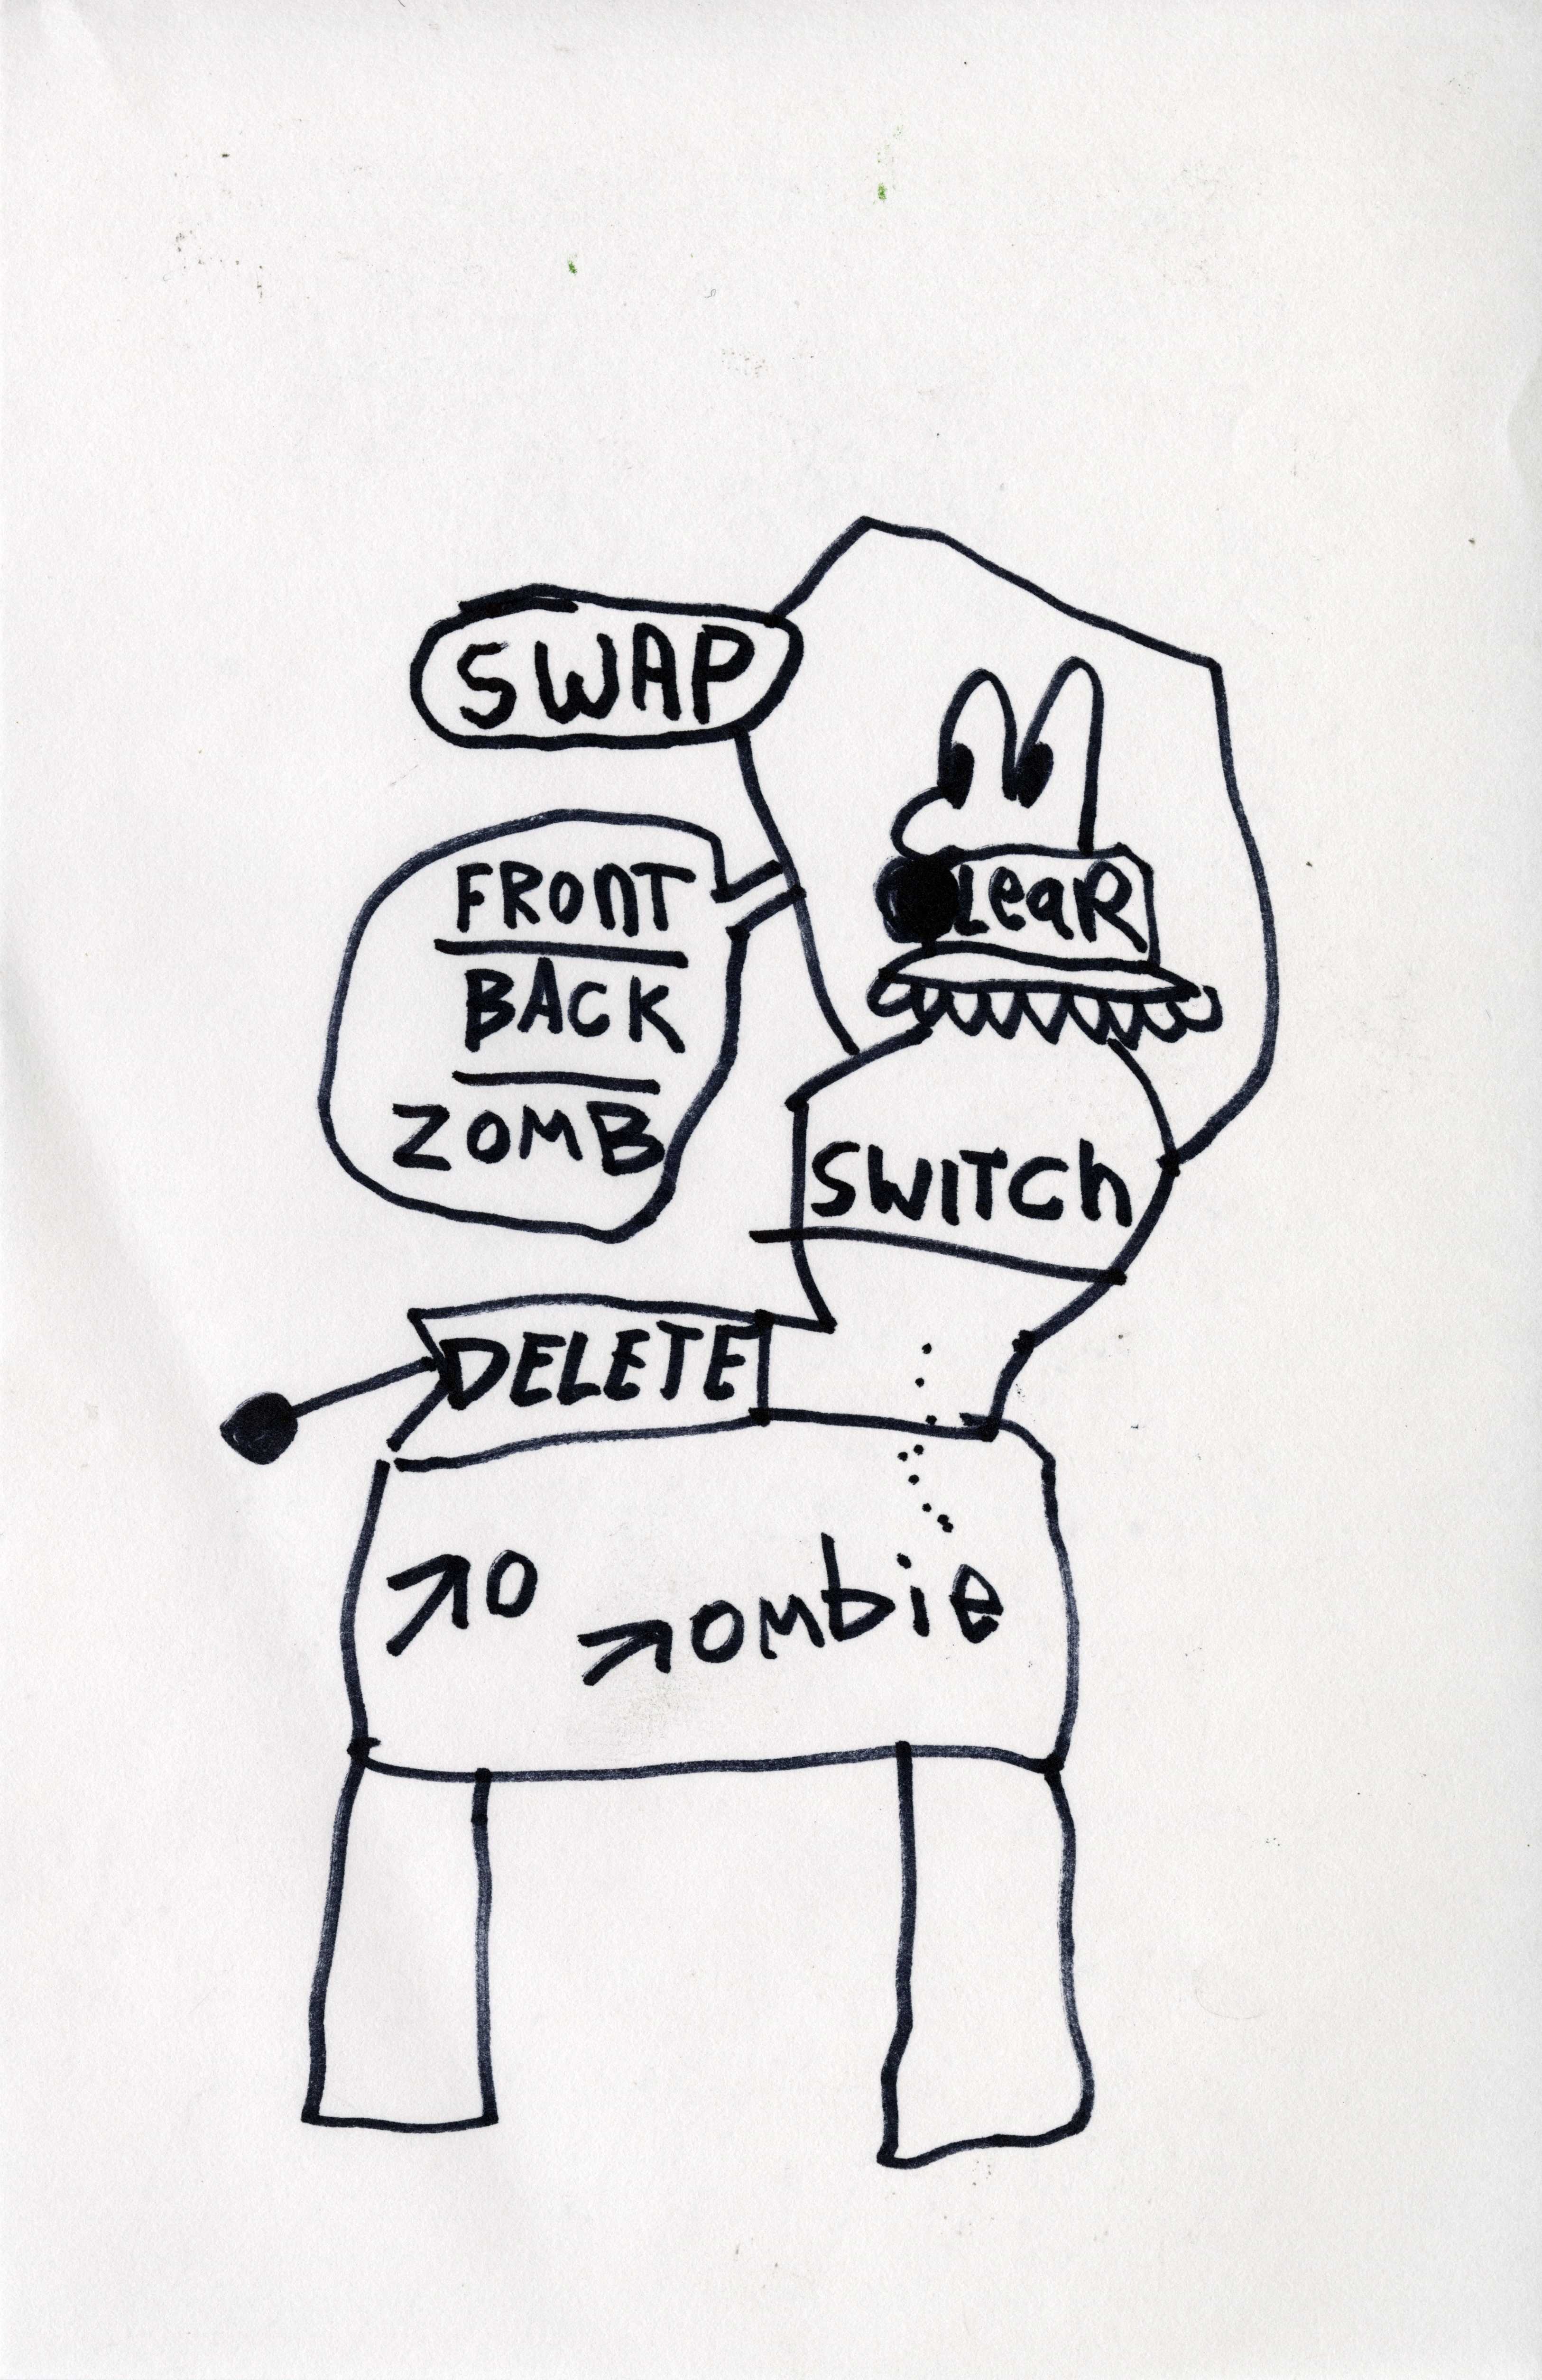 SWAP
FRONT
BACK
ZOMB
CLEAR
SWITCH
DELETE
↗o
↗ombie